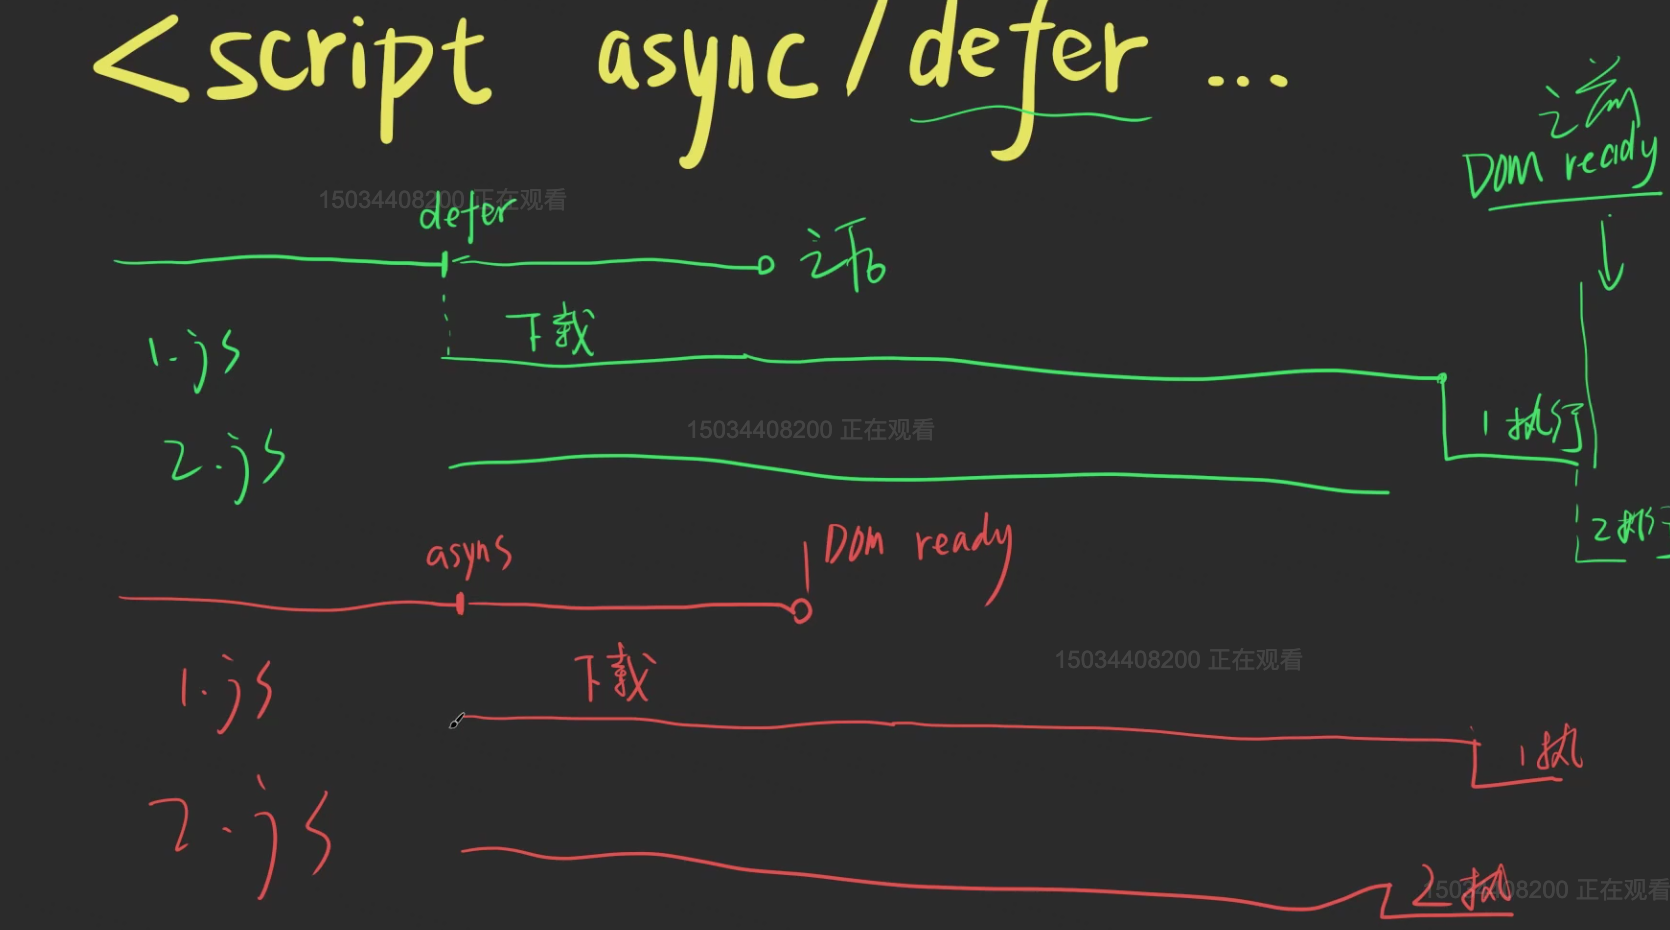 <script async/defer ...
DOM ready
15034408200 正在观看
defer
下载
1.js
1执行
15034408200 正在观看
2.js
2执行
asyns
DOM ready
15034408200 正在观看
下载
1.js
1执
2.js
2执
15034408200 正在观看